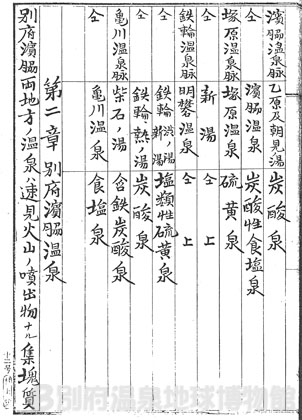 濱脇温泉脉 乙原及朝見湯 炭酸泉
仝 濱脇温泉 炭酸性食塩泉
塚原温泉脉 塚原温泉 硫黄泉
仝 新湯 仝上
鉄輪温泉脉 明礬温泉 仝上
仝 鉄輪 渋ノ湯 新湯 塩類性硫黄泉
仝 鉄輪熱ノ湯 炭酸泉
亀川温泉脉 柴石ノ湯 含鉄炭酸泉
仝 亀川温泉 食塩泉
第二章 別府濱脇温泉
別府濱脇両地方ノ温泉ハ速見火山ノ噴出物ナル集塊質
別府温泉地球博物館